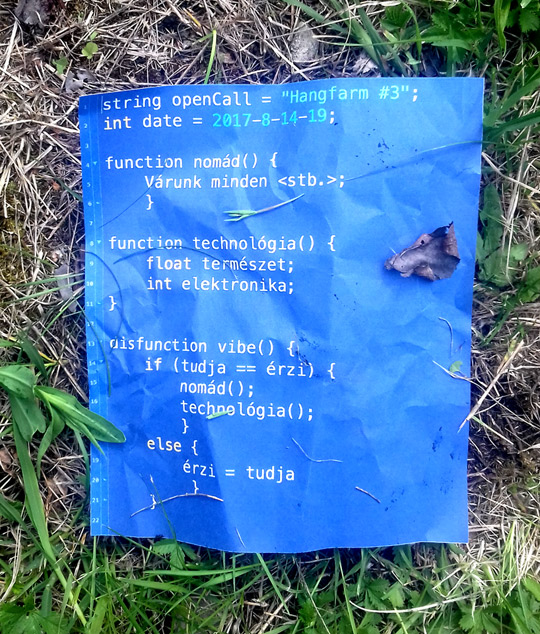 string openCall = "Hangfarm #3";
int date = 2017-8-14-19;
function nomád() {
Várunk minden <stb.>;
}
function technológia() {
float természet;
int elektronika;
}
disfunction vibe() {
if (tudja == érzi) {
nomád();
technológia();
}
else {
érzi = tudja
}
}